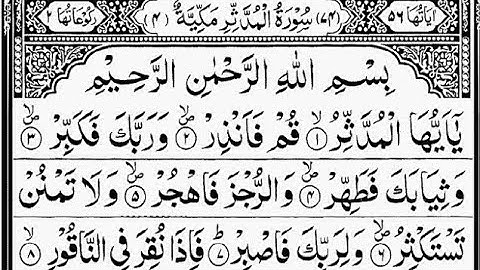 اٰیَاتُهَا ٥٦ (٧٤) سُوْرَةُ الْمُدَّثِّرِ مَكِّیَّةٌ (٤) رُكُوْعَاتُهَا ٢
بِسْمِ اللهِ الرَّحْمٰنِ الرَّحِیْمِ
یٰۤاَیُّهَا الْمُدَّثِّرُ ۙ﴿۱﴾ قُمْ فَاَنْذِرْ ۪ۙ﴿۲﴾ وَ رَبَّكَ فَكَبِّرْ ۪ۙ﴿۳﴾
وَ ثِیَابَكَ فَطَهِّرْ ۪ۙ﴿۴﴾ وَ الرُّجْزَ فَاهْجُرْ ۪ۙ﴿۵﴾ وَ لَا تَمْنُنْ
تَسْتَكْثِرُ ۪ۙ﴿۶﴾ وَ لِرَبِّكَ فَاصْبِرْ ؕ﴿۷﴾ فَاِذَا نُقِرَ فِی النَّاقُوْرِ ۙ﴿۸﴾